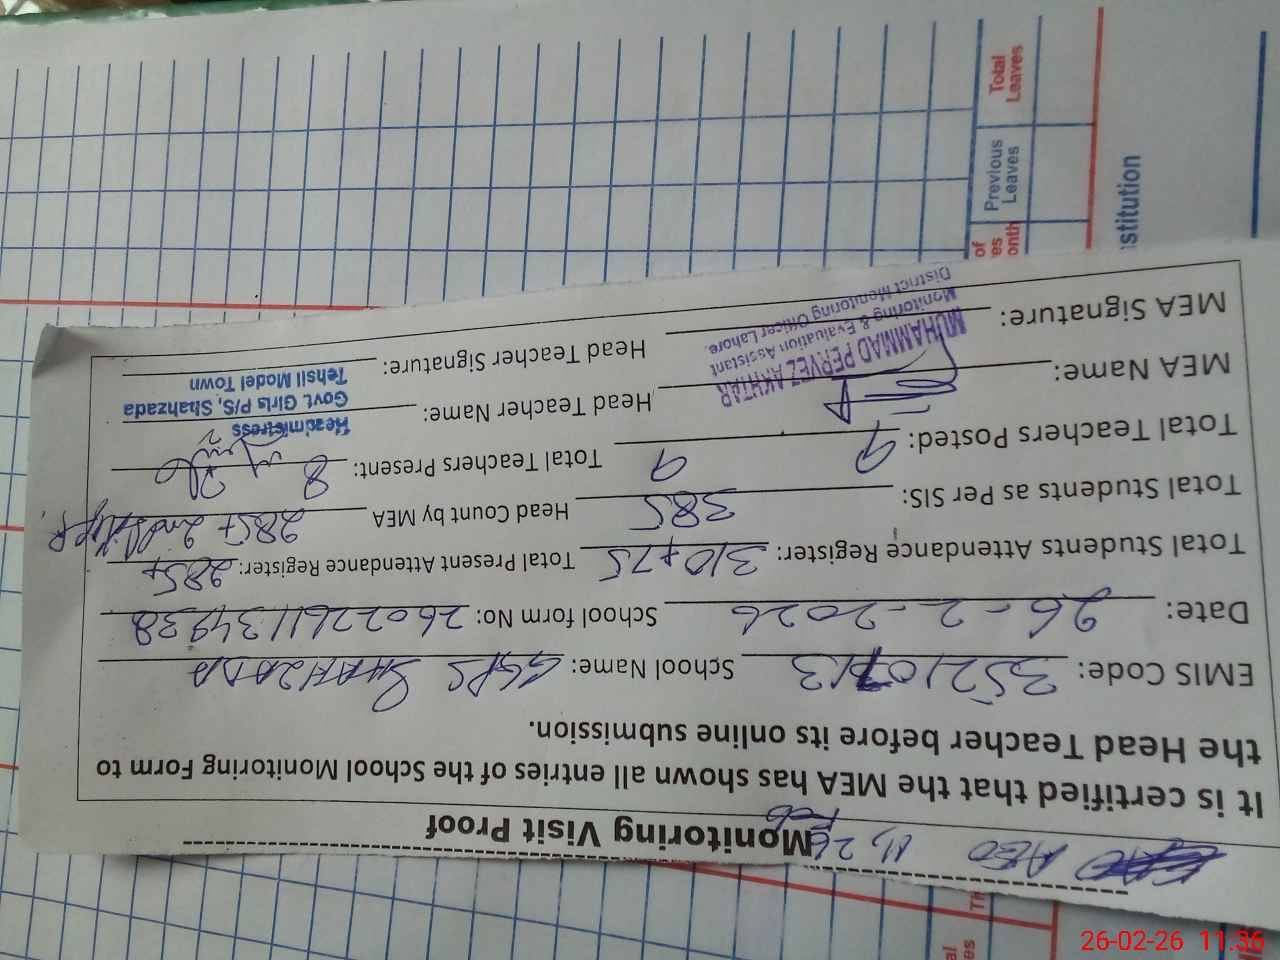 AEO
Feb
Monitoring Visit Proof
It is certified that the MEA has shown all entries of the School Monitoring Form to
the Head Teacher before its online submission.
EMIS Code: School Name: GGPS SHAHZADA
Date: 26-2-2026 School form No: 2602261134938
Total Students Attendance Register: 310+75 Total Present Attendance Register: 285+
Total Students as Per SIS: 385 Head Count by MEA 285+ 2nd
Total Teachers Posted: 9 9 Total Teachers Present: 8
MEA Name: Head Teacher Name:
MEA Signature: Head Teacher Signature:
MUHAMMAD PERVEZ AKHTAR
Monitoring & Evaluation Assistant
District Monitoring Officer Lahore.
Headmistress
Govt. Girls P/S, Shahzada
Tehsil Model Town
Total
Leaves
Previous
Leaves
of
es
onth
stitution
26-02-26 11:36